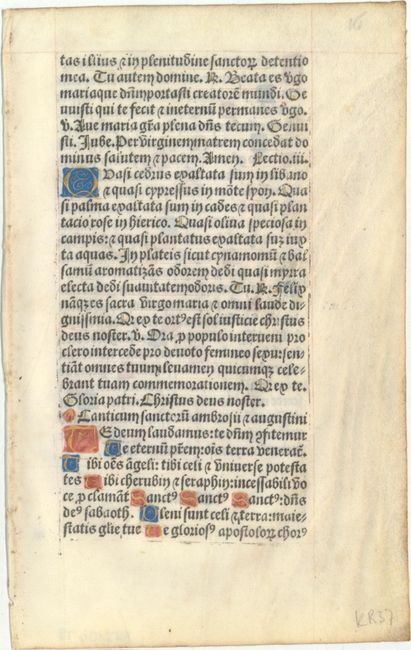 tas illius ⁊ in plenitudine sanctoꝝ detentio
mea. Tu autem domine. R. Beata es v̾go
maria que dn̄m portasti creatorē mundi. Ge
nuisti qui te fecit ⁊ ineternū permanes v̾go.
v. Aue maria gr̄a plena dn̄s tecum. Genui
sti. Jube. Per virginem matrem concedat do
minus salutem ⁊ pacem. Amen. Lectio.iii.
Quasi cedrus exaltata sum in libano
⁊ quasi cypressus in mōte syon. Qua
si palma exaltata sum in cades ⁊ quasi plan
tacio rose in hierico. Quasi oliua speciosa in
campis: ⁊ quasi plantatus exaltata suȝ iux
ta aquas. In plateis sicut cynamomū ⁊ bal
samū aromatizās odorem dedi quasi myrra
electa dedi suauitatem odoris. Tu. R. Felix
nāqȝ es sacra virgo maria ⁊ omni laude di-
gnissima. Qr ex te ort⁹ est sol iusticie christus
deus noster. v. Ora ꝓ populo interueni pro
clero intercede pro deuoto femineo sexu: sen-
tiāt omnes tuum leuamen quicumqȝ cele-
brant tuam commemorationem. Qr ex te.
Gloria patri. Christus deus noster.
Canticum sanctorū ambrosii ⁊ augustini
Te deum laudamus: te dn̄m ꝯfitemur
Te eternū pr̄em: oīs terra venerat̄.
Tibi oēs āgeli: tibi celi ⁊ vniuerse potesta
tes Tibi cherubin ⁊ seraphin: incessabili vo
ce ꝓclamāt Sanct⁹ Sanct⁹ Sanct⁹: dn̄s
de⁹ sabaoth. Pleni sunt celi ⁊ terra: maie-
statis glīe tue Te glorios⁹ apostoloꝝ chor⁹
KR37